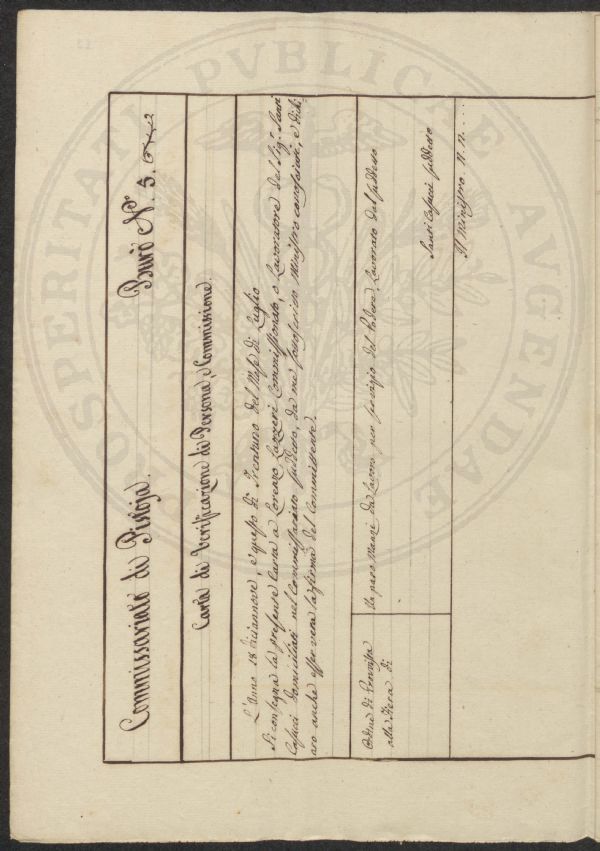 Commissariato di Pistoja. Burò N.° 5.
Carta di Verificazione di Persona, e Commissione.
L'Anno 18 diciannove, e questo dì Trentuno del Mese di Luglio
Si consegna la presente Carta a Lorenzo Lazzeri Commissionato, o Lavoratore del Sig. Santi
Cafucci domiciliati nel Commissariato suddetto, da me sottoscritto Ministro conosciuti, e dichi
aro anche esser vera la firma del Committente.
Ordine di Provvista
alla Fiera di
Un paro Manzi da Lavoro per servizio del Podere, Lavorato dal suddetto
Santi Cafucci suddetto
Il Ministro. n. n. ...
PROSPERITATI PVBLICAE AVGENDAE